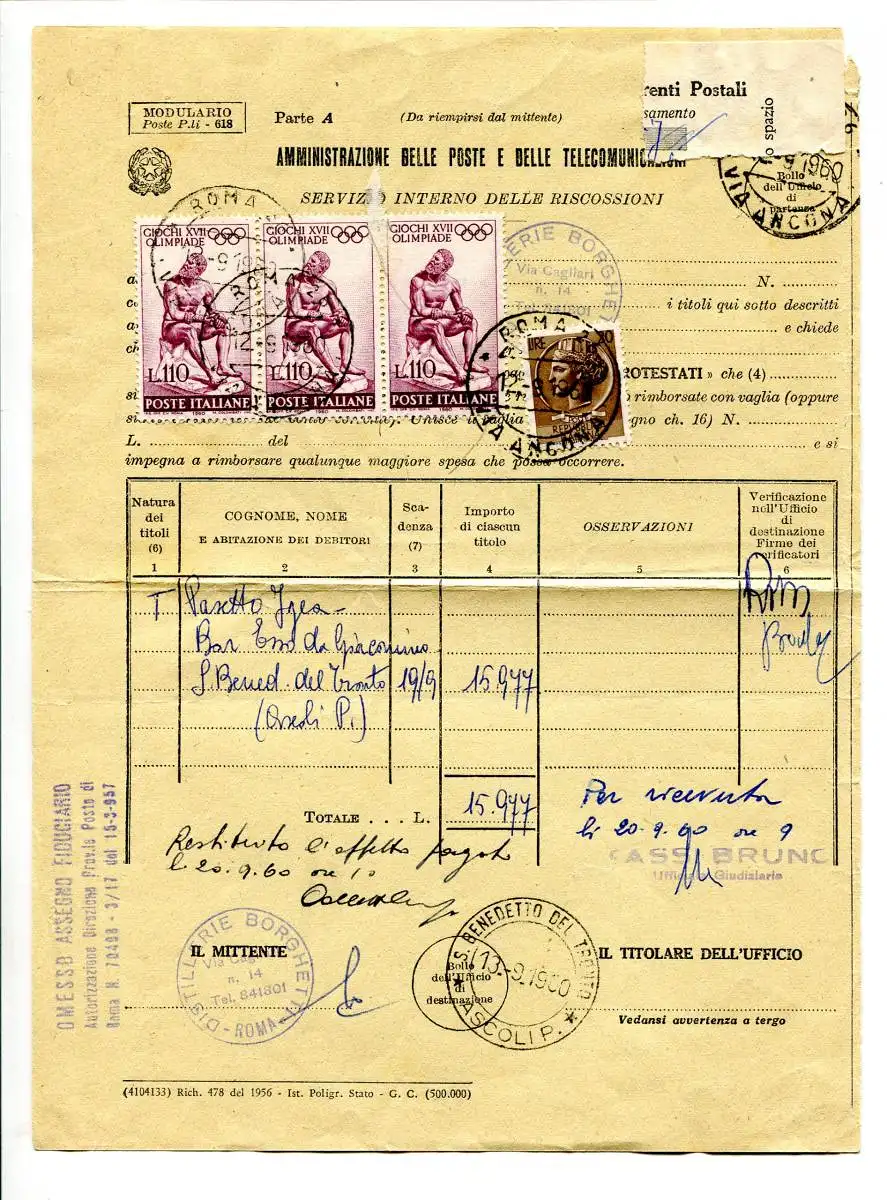 renti Postali
samento
o spazio
MODULARIO
Poste P.li - 618
Parte A
(Da riempirsi dal mittente)
AMMINISTRAZIONE DELLE POSTE E DELLE TELECOMUNICAZIONI
SERVIZIO INTERNO DELLE RISCOSSIONI
9 1960
Bollo
dell'Ufficio
di
partenza
VIA ANCONA
ROMA
GIOCHI XVII
OLIMPIADE
GIOCHI XVII
OLIMPIADE
GIOCHI XVII
OLIMPIADE
L.110
L.110
L.110
POSTE ITALIANE
POSTE ITALIANE
POSTE ITALIANE
ROMA
12-9 1960
ERIE BORGHE
Via Cagliari
n. 14
Tel. 841801
N.
i titoli qui sotto descritti
e chiede
ROMA
12-9 196
VIA ANCONA
LIRE
ROTESTATI » che (4)
o rimborsate con vaglia (oppure
gno ch. 16) N.
L.
del
e si
impegna a rimborsare qualunque maggiore spesa che possa occorrere.
Natura
dei
titoli
(6)
COGNOME, NOME
E ABITAZIONE DEI DEBITORI
Sca-
denza
(7)
Importo
di ciascun
titolo
OSSERVAZIONI
Verificazione
nell'Ufficio
di
destinazione
Firme dei
verificatori
1 2 3 4 5 6
T Pasetto Igea -
Bar Esso da Giacomino
S. Bened. del Tronto 19/9 15.977
(Ascoli P.)
TOTALE . . . L. 15.977
Per ricevuta
li 20.9.60 ore 9
CASSI BRUNO
Ufficiale Giudiziario
Restituito l'effetto pagato
li 20.9.60 ore 10
OMESSO ASSEGNO FIDUCIARIO
Autorizzazione Direzione Prov.le Poste di
Roma N. 70498 - 3/17 dal 15-3-957
IL MITTENTE
DISTILLERIE BORGHETTI
Via Cagliari
n. 14
Tel. 841801
- ROMA -
Bollo
dell'Ufficio
di
destinazione
S. BENEDETTO DEL TRONTO
13.-9.1960
* ASCOLI P. *
IL TITOLARE DELL'UFFICIO
Vedansi avvertenza a tergo
(4104133) Rich. 478 del 1956 - Ist. Poligr. Stato - G. C. (500.000)